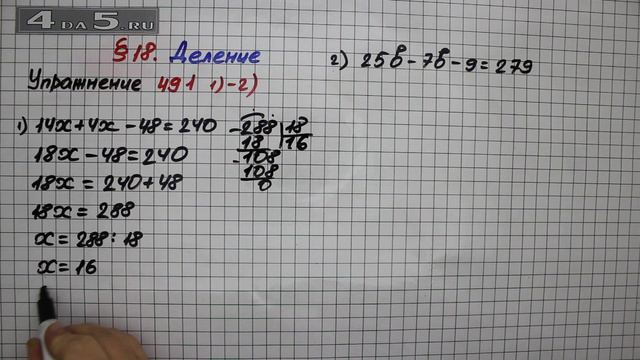 4 DA 5.RU
§ 18. Деление
Упражнение 491 1)-2)
1) 14x+4x-48=240
18x-48=240
18x=240+48
18x=288
x=288:18
x=16
-288 18
18 16
-108
108
0
2) 25b-7b-9=279